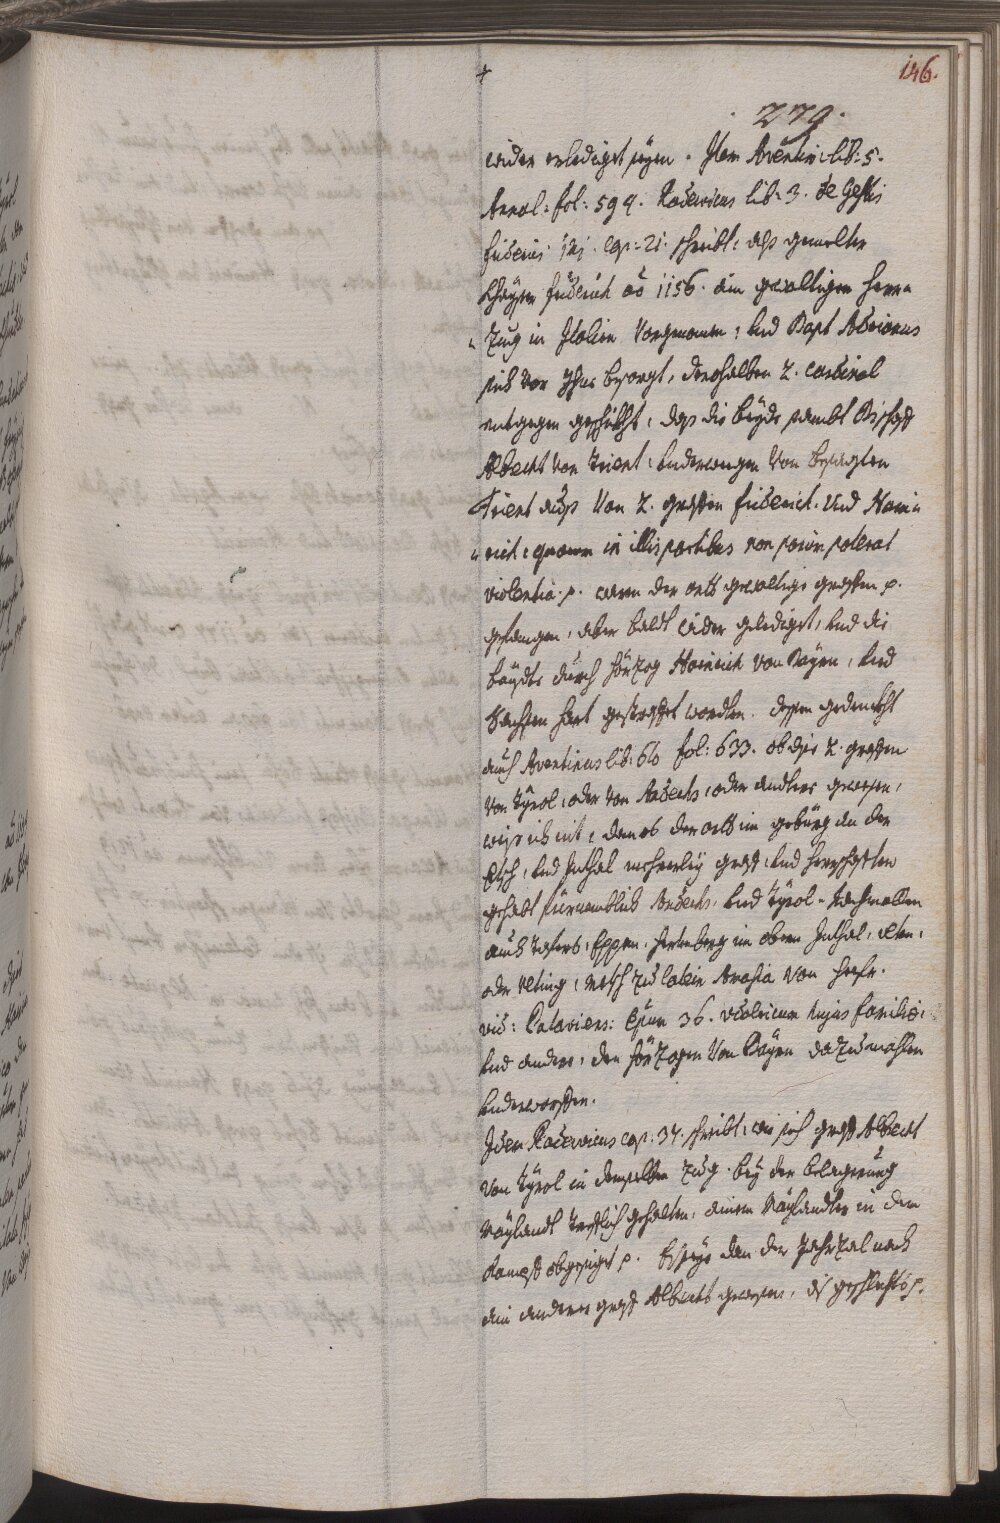 146.
279.
wider erlediget seyen. Item Aventin: lib: 5.
Annal: fol: 594. Radevicus lib: 3. de Gestis
friderici j2j. Cap: 21. schreibt: daß gemelter
Khayser friderich aõ 1156. ain gewaltigen Heer„
„Zug in Italien vorgenomen, und Bapst Adrianus
sich vor Ihme besorgt, derohalben 2. Cardinal
entgegen geschickht, daß die beyde sambt Bischoff
Albrecht von Trient, underwegen von besagten
Trient auß von 2. graffen friderich. Und Hain„
„rich, quorum in illis partibus non parùm poterat
violentia. p. waren der orth gewaltige graffen p.
gefangen, aber baldt wider gelediget, und die
baydte durch Hörzog Hainrich von Bayrn, und
Sachsen hart gestraffet wordten. dessen gedenckht
auch Aventinus lib: 6to fol: 633. ob dise 2. graffen
von Tyrol, oder von Andechs, oder anders gewesen,
weiß ich nit, dan es der orth im gebürg an der
Etsch, und Inthal mehrerley graff, und herrschafften
gehabt fürnemblich Andechs, und Tyrol. Nachmallen
auch Tafers, Eppen, Hertenberg im obern Inthal, Ulten,
oder Ulting, Mätsch zu latein Amasia von
vid: Pataviens: Epum 36. Udalricum hujus familiæ,
und andere, den Hörzogen von Bayrn dazumahlen
underworffen.
Idem Radevicus cap: 34. schreibt, wie sich graff Albrecht
von Tyrol in demselben Zug. bey der belagerung
Maylandt trefflich gehalten, ainem Maylandter in dem
Kampff obgesiget p. Es seye dan der Jahrzal nach
ain anderer graff Albrecht gewesen, diß geschlechts p.